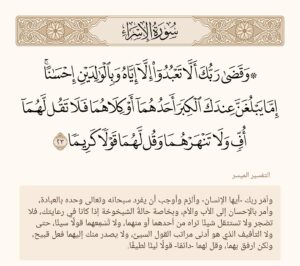 سُورَةُ الإِسْرَاءِ
۞ وَقَضَىٰ رَبُّكَ أَلَّا تَعْبُدُوٓا۟ إِلَّآ إِيَّاهُ وَبِٱلْوَٰلِدَيْنِ إِحْسَـٰنًا ۚ
إِمَّا يَبْلُغَنَّ عِندَكَ ٱلْكِبَرَ أَحَدُهُمَآ أَوْ كِلَاهُمَا فَلَا تَقُل لَّهُمَآ
أُفٍّ وَلَا تَنْهَرْهُمَا وَقُل لَّهُمَا قَوْلًا كَرِيمًا ٢٣
التفسير الميسر
وأمر ربك -أيها الإنسان- وألزم وأوجب أن يفرد سبحانه وتعالى وحده بالعبادة،
وأمر بالإحسان إلى الأب والأم، وبخاصة حالةُ الشيخوخة إذا كانا في رعايتك، فلا
تضجر ولا تستثقل شيئًا تراه من أحدهما أو منهما، ولا تسمعهما قولا سيئًا، حتى
ولا التأفيف الذي هو أدنى مراتب القول السيئ، ولا يصدر منك إليهما فعل قبيح،
ولكن ارفق بهما، وقل لهما -دائما- قولا لينًا لطيفًا.